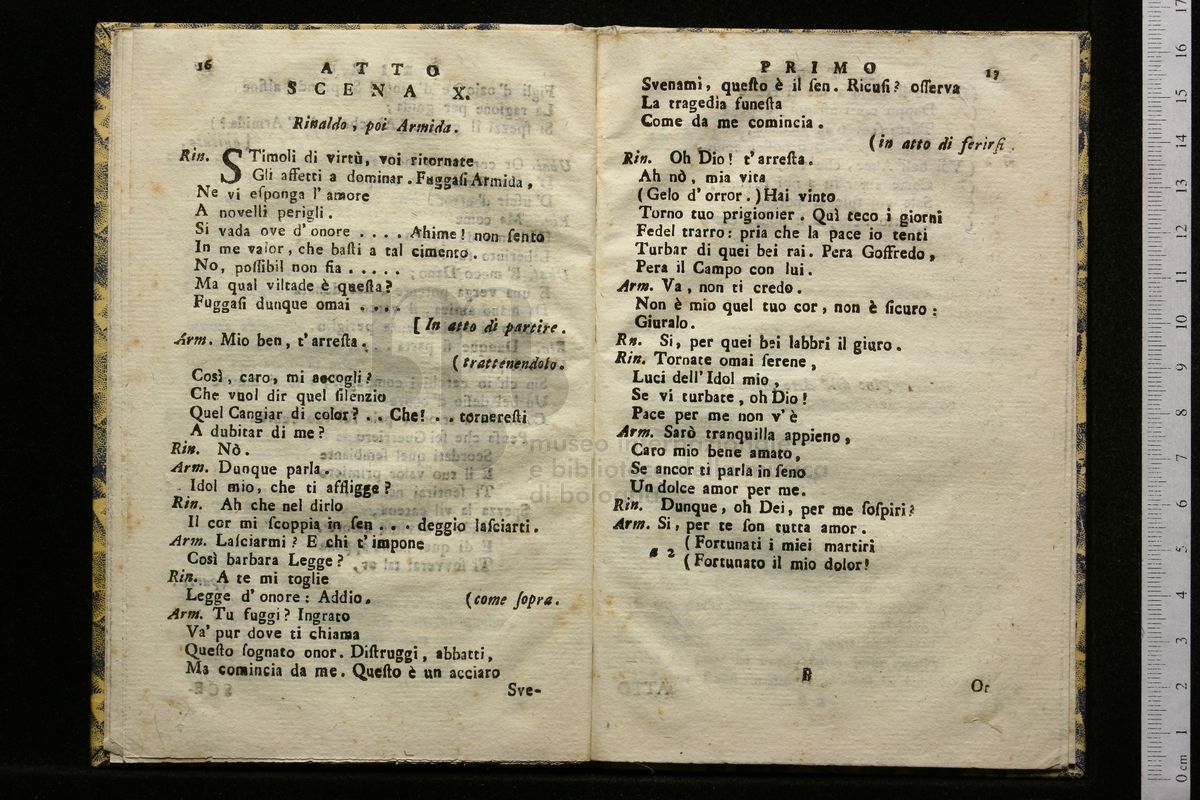 16
ATTO
SCENA X.
Rinaldo, poi Armida.
Rin. STimoli di virtù, voi ritornate
Gli affetti a dominar. Fuggasi Armida,
Ne vi esponga l'amore
A novelli perigli.
Si vada ove d'onore .... Ahime! non sento
In me valor, che basti a tal cimento.
No, possibil non fia .....
Ma qual viltade è questa?
Fuggasi dunque omai ....
[In atto di partire.
Arm. Mio ben, t'arresta.
(trattenendolo.
Così, caro, mi accogli?
Che vuol dir quel silenzio
Quel Cangiar di color? .. Che! .. torneresti
A dubitar di me?
Rin. Nò.
Arm. Dunque parla.
Idol mio, che ti affligge?
Rin. Ah che nel dirlo
Il cor mi scoppia in sen ... deggio lasciarti.
Arm. Lasciarmi? E chi t'impone
Così barbara Legge?
Rin. A te mi toglie
Legge d'onore: Addio. (come sopra.
Arm. Tu fuggi? Ingrato
Va' pur dove ti chiama
Questo sognato onor. Distruggi, abbatti,
Ma comincia da me. Questo è un acciaro
Sve-
PRIMO
17
Svenami, questo è il sen. Ricusi? osserva
La tragedia funesta
Come da me comincia.
(in atto di ferirsi.
Rin. Oh Dio! t'arresta.
Ah nò, mia vita
(Gelo d'orror.) Hai vinto
Torno tuo prigionier. Quì teco i giorni
Fedel trarro: pria che la pace io tenti
Turbar di quei bei rai. Pera Goffredo,
Pera il Campo con lui.
Arm. Va, non ti credo.
Non è mio quel tuo cor, non è sicuro:
Giuralo.
Rn. Si, per quei bei labbri il giuro.
Rin. Tornate omai serene,
Luci dell'Idol mio,
Se vi turbate, oh Dio!
Pace per me non v'è
Arm. Sarò tranquilla appieno,
Caro mio bene amato,
Se ancor ti parla in seno
Un dolce amor per me.
Rin. Dunque, oh Dei, per me sospiri?
Arm. Si, per te son tutta amor.
(Fortunati i miei martiri
a 2
(Fortunato il mio dolor!
B
Or
museo internazionale
e biblioteca della musica
di bologna